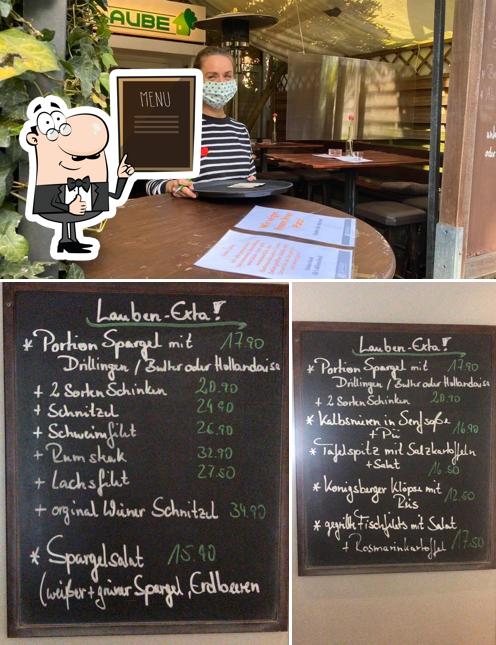 LAUBE
MENU
Lauben-Exta!
* Portion Spargel mit 17.90
Drillingen / Butter oder Hollandaise
+ 2 Sorten Schinken 20.90
+ Schnitzel 24.90
+ Schweinfilet 26.90
+ Rumsteak 32.90
+ Lachsfilet 27.50
+ orginal Wiener Schnitzel 34.90
* Spargelsalat 15.90
(weißer + grüner Spargel, Erdbeeren
Lauben-Exta!
* Portion Spargel mit 17.90
Drillingen / Butter oder Hollandaise
+ 2 Sorten Schinken 20.90
* Kalbsnieren in Senfsoße 16.90
* Tafelspitz mit Salzkartoffeln
+ Salat 16.50
* Königsberger Klöpse mit 12.50
Reis
* gegrillte Fischfilets mit Salat
+ Rosmarinkartoffel 17.50